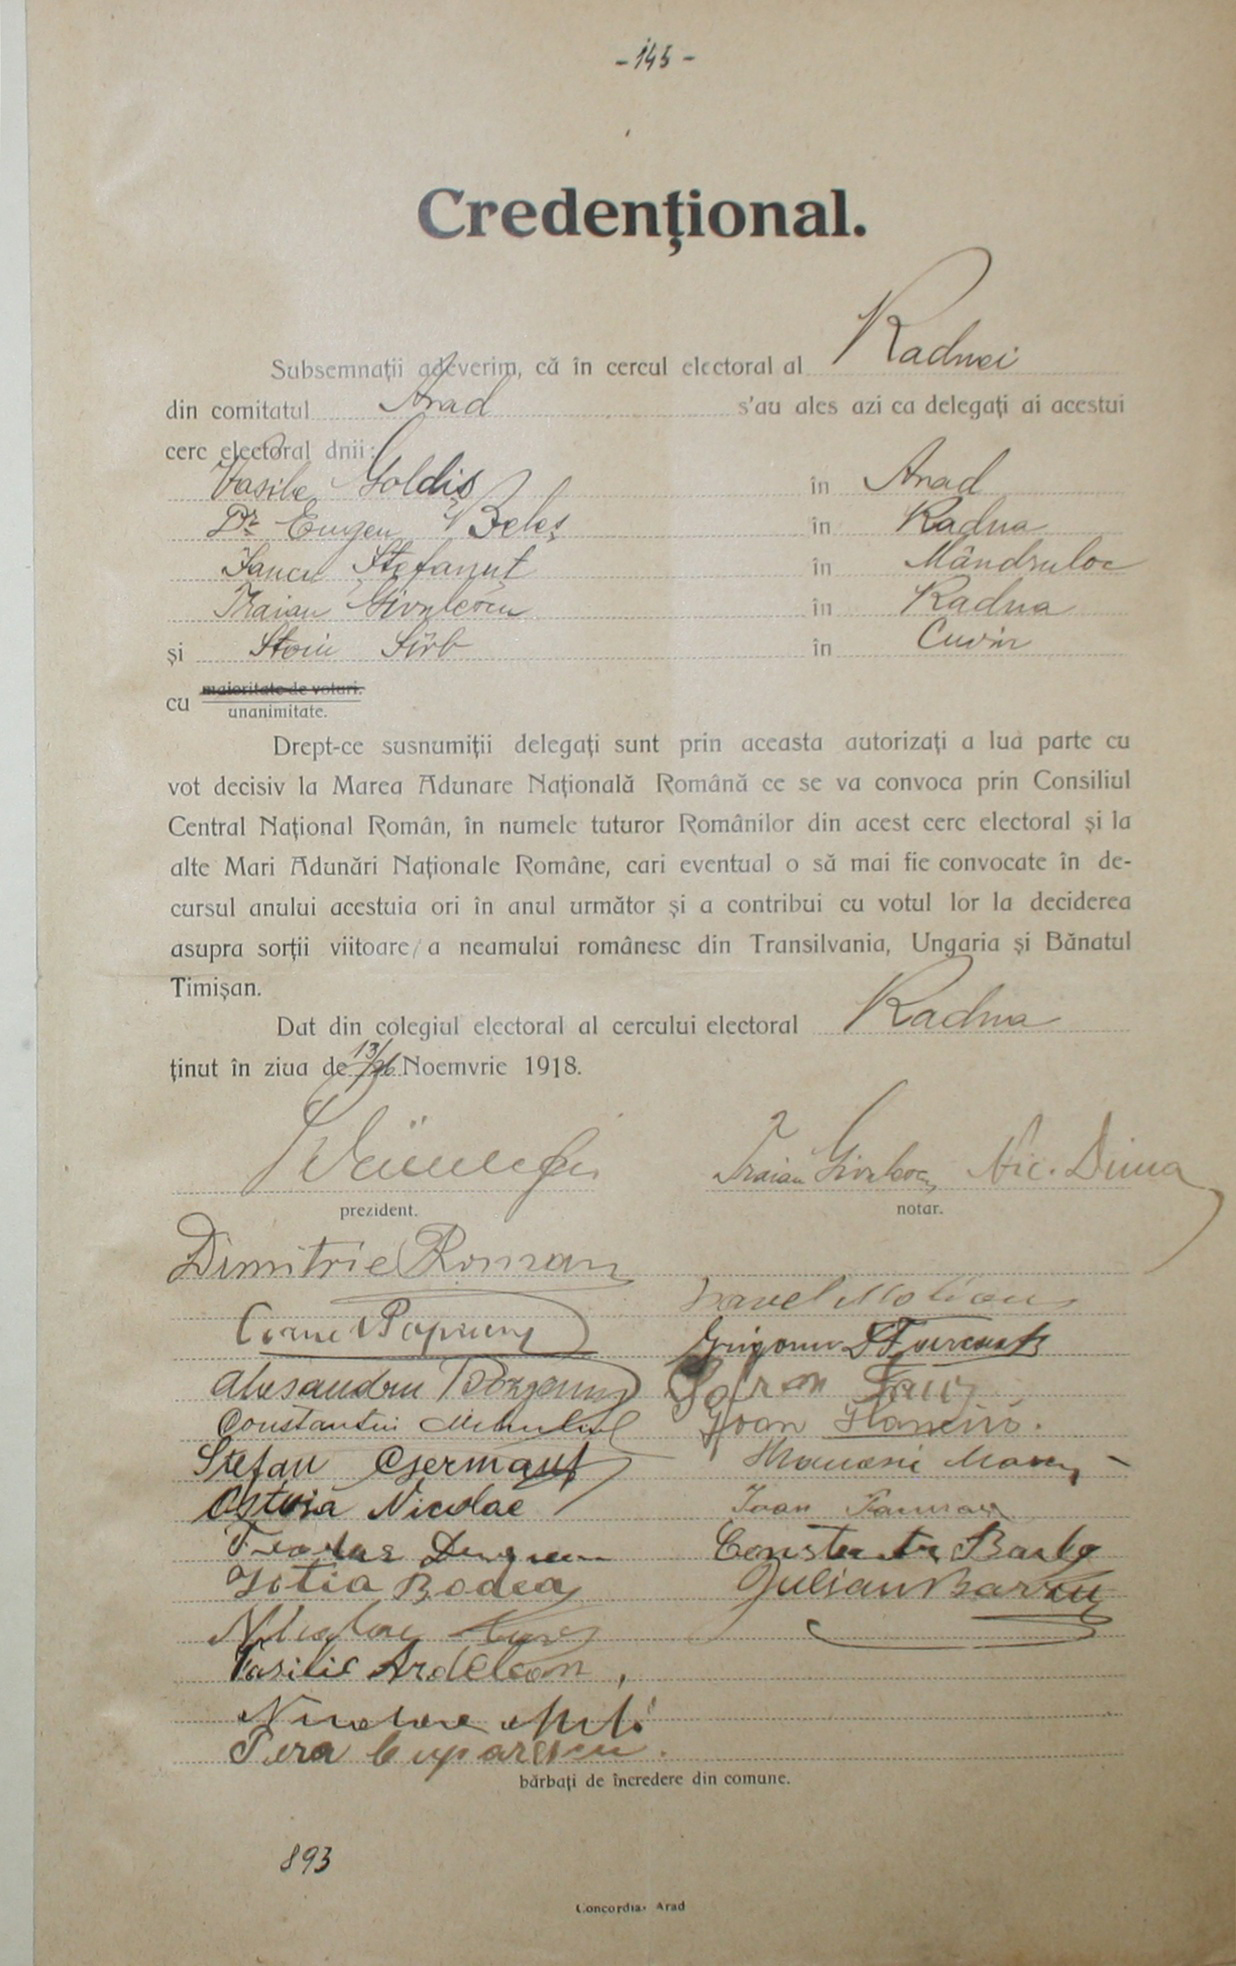 - 145 -
Credențional.
Subsemnații adeverim, că în cercul electoral al Radnei
din comitatul Arad s'au ales azi ca delegați ai acestui
cerc electoral dnii:
Vasile Goldiș în Arad
Dr. Eugen Beleș în Radna
Iancu Ștefanuț în Mândruloc
Traian Givulescu în Radna
și Stoiu Sîrb în Cuvin
cu majoritate de voturi.
unanimitate.
Drept-ce susnumiții delegați sunt prin aceasta autorizați a lua parte cu
vot decisiv la Marea Adunare Națională Română ce se va convoca prin Consiliul
Central Național Român, în numele tuturor Românilor din acest cerc electoral și la
alte Mari Adunări Naționale Române, cari eventual o să mai fie convocate în de-
cursul anului acestuia ori în anul următor și a contribui cu votul lor la deciderea
asupra sorții viitoare a neamului românesc din Transilvania, Ungaria și Bănatul
Timișan.
Dat din colegiul electoral al cercului electoral Radna
ținut în ziua de 13/26 Noemvrie 1918.
Traian Givulescu Nic. Dima
prezident. notar.
Dimitrie Roman
Pavel
Cornel
Grigoriu
Alesandru
Constantin
Ioan
Stefan Ghermanț
Nicolae
Ioan
Constantin
Iotia Bodea
Iulian Barbu
Vasilie Ardelean,
Nicolae
Pera Cuparescu.
bărbați de încredere din comune.
893
Concordia Arad